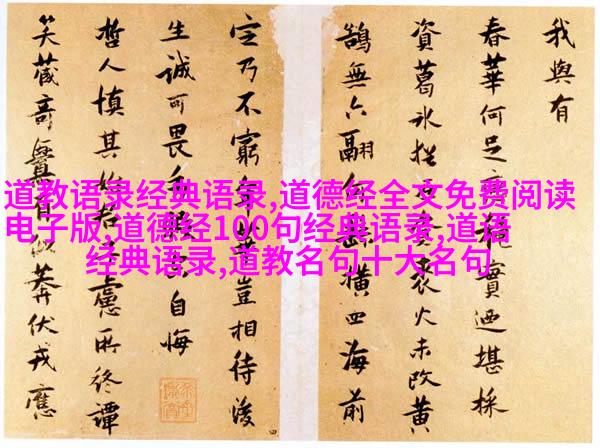 道教语录经典语录,道德经全文免费阅读
电子版,道德经100句经典语录,道语
经典语录,道教名句十大名句
我與有
春華何足實迺堪採
資葛冰裘火未改黃
鵠無六翮橫四海前
定乃不窮年豈相待後
生誠可畏自悔
哲人慎其始若慮所終譚
笑藏奇似莽伏戎應